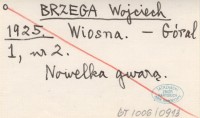 BRZEGA Wojciech
1925. Wiosna. – Góral
1, nr 2.
Nowelka gwarą.